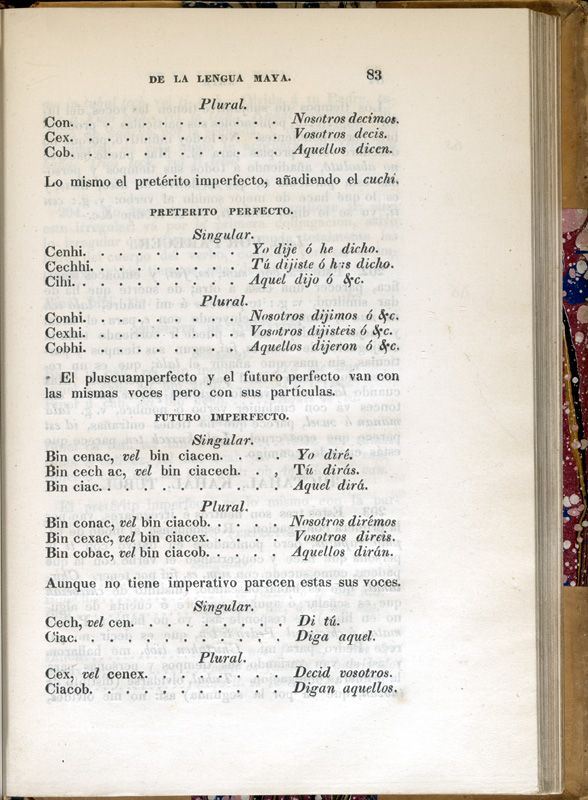 DE LA LENGUA MAYA. 83
Plural.
Con. . . . . . . . . . . . Nosotros decimos.
Cex. . . . . . . . . . . . Vosotros decis.
Cob. . . . . . . . . . . . Aquellos dicen.
Lo mismo el pretérito imperfecto, añadiendo el cuchi.
PRETERITO PERFECTO.
Singular.
Cenhi. . . . . . . . . Yo dije ó he dicho.
Cechhi. . . . . . . . . Tú dijiste ó has dicho.
Cihi. . . . . . . . . Aquel dijo ó &c.
Plural.
Conhi. . . . . . . . . Nosotros dijimos ó &c.
Cexhi. . . . . . . . . Vosotros dijisteis ó &c.
Cobhi. . . . . . . . . Aquellos dijeron ó &c.
El pluscuamperfecto y el futuro perfecto van con
las mismas voces pero con sus partículas.
FUTURO IMPERFECTO.
Singular.
Bin cenac, vel bin ciacen. . . . . Yo diré.
Bin cech ac, vel bin ciacech. . . , Tú dirás.
Bin ciac. . . . . . . . . . Aquel dirá.
Plural.
Bin conac, vel bin ciacob. . . . . . Nosotros dirémos
Bin cexac, vel bin ciacex. . . . . . Vosotros direis.
Bin cobac, vel bin ciacob. . . . . . Aquellos dirán.
Aunque no tiene imperativo parecen estas sus voces.
Singular.
Cech, vel cen. . . . . . . . . Di tú.
Ciac. . . . . . . . . . . . Diga aquel.
Plural.
Cex, vel cenex. . . . . . . . . Decid vosotros.
Ciacob. . . . . . . . . . . Digan aquellos.